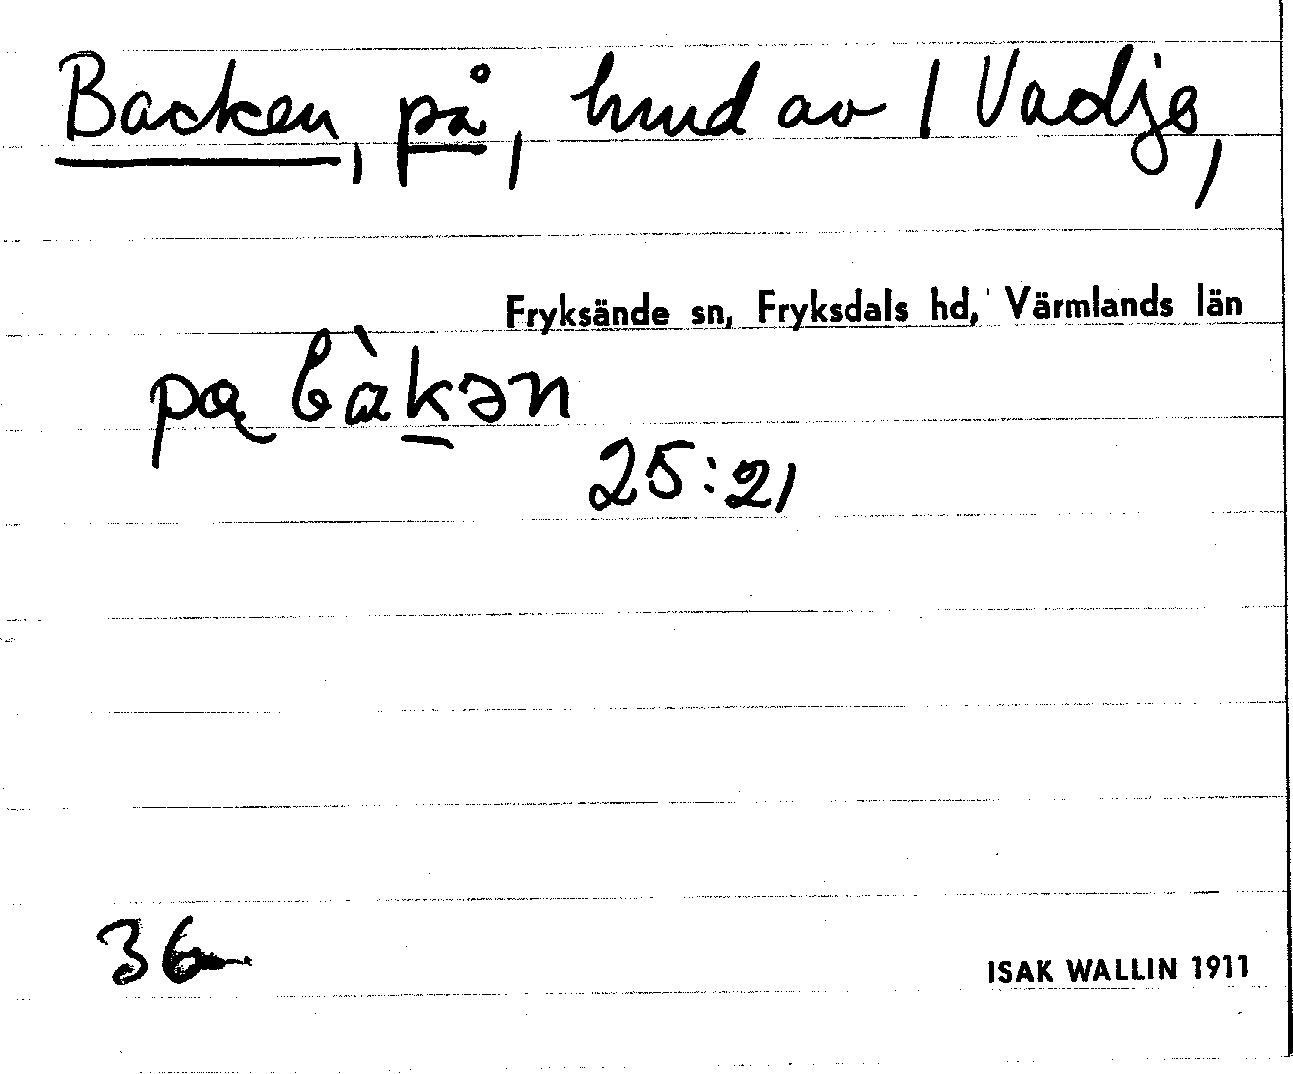 Backen, på, hmd av 1 Vadje,
Fryksände sn, Fryksdals hd, Värmlands län
pɑ bàk̲ən
25:21
36
ISAK WALLIN 1911